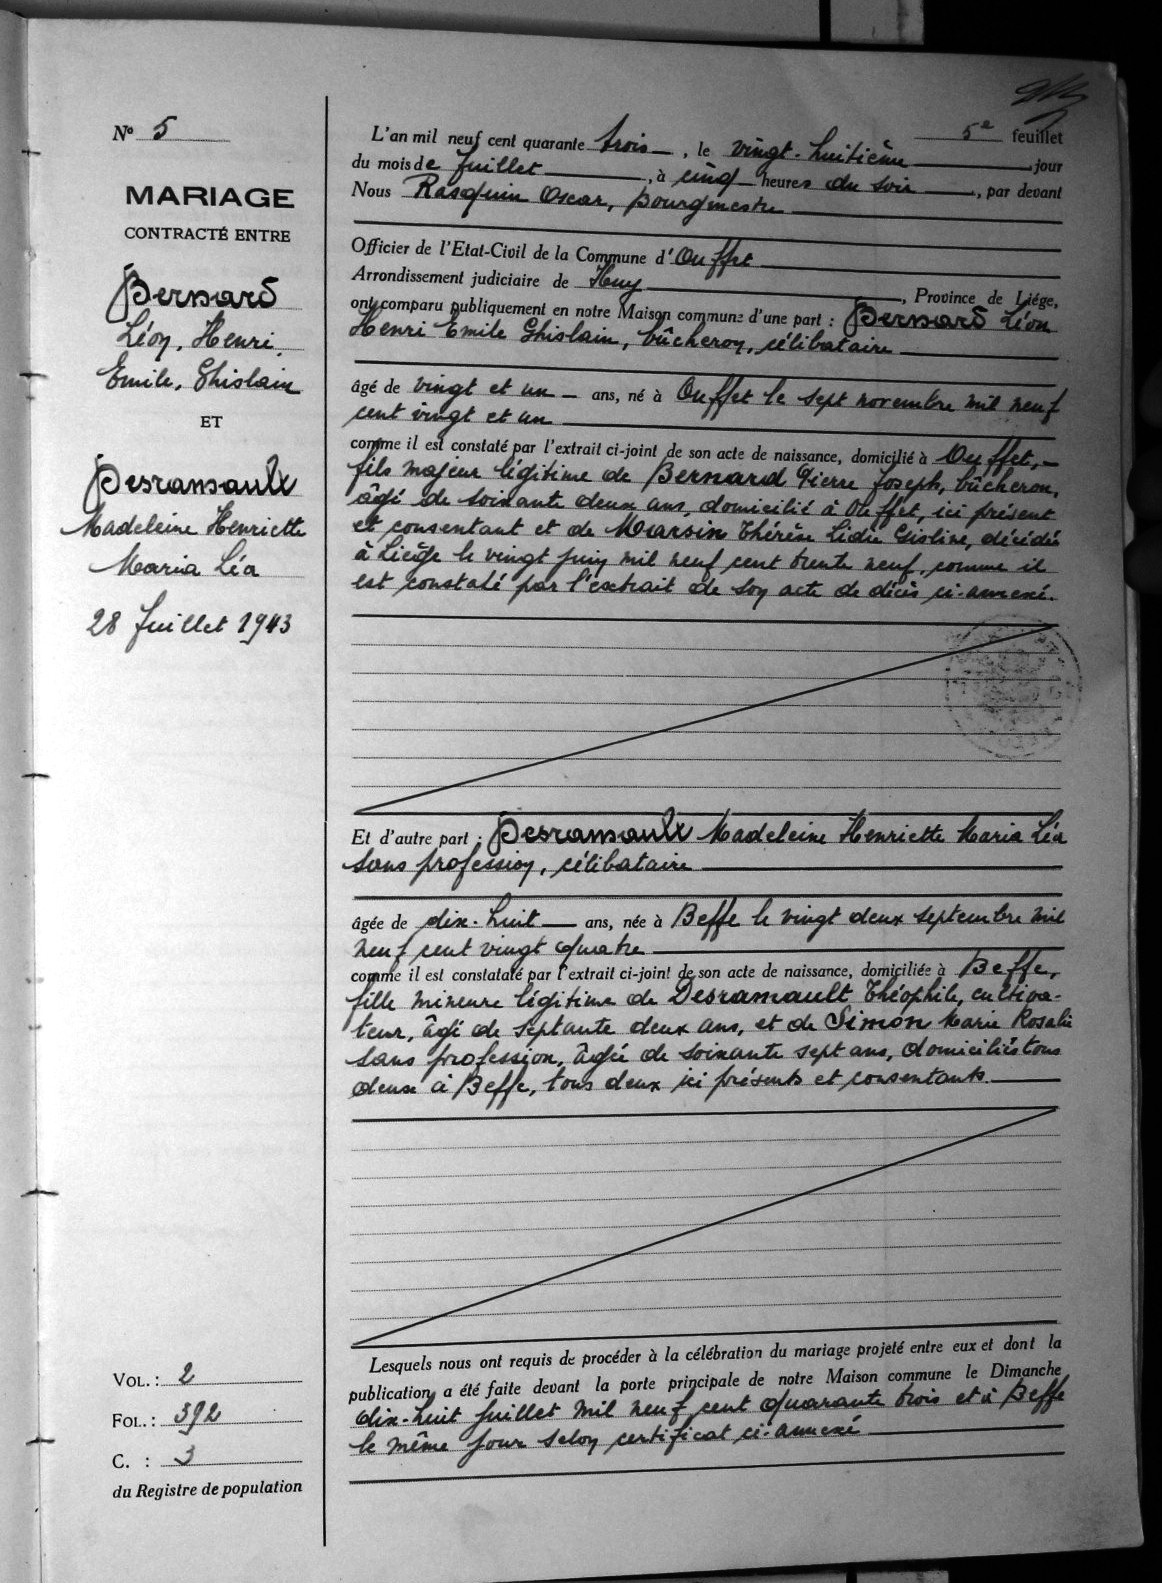 N° 5
MARIAGE
CONTRACTÉ ENTRE
Bernard
Léon, Henri,
Emile, Ghislain
ET
Desramault
Madeleine Henriette
Maria Léa
28 Juillet 1943
VOL. : 2
FOL. : 392
C. : 3
du Registre de population
5e feuillet
L'an mil neuf cent quarante trois, le vingt-huitième jour
du mois de Juillet, à cinq heures du soir, par devant
Nous Rasquin Oscar, bourgmestre
Officier de l'Etat-Civil de la Commune d'Ouffet
Arrondissement judiciaire de Huy, Province de Liége,
ont comparu publiquement en notre Maison commune d'une part : Bernard Léon
Henri Emile Ghislain, bûcheron, célibataire
âgé de vingt et un ans, né à Ouffet le sept novembre mil neuf
cent vingt et un
comme il est constaté par l'extrait ci-joint de son acte de naissance, domicilié à Ouffet,
fils majeur légitime de Bernard Pierre Joseph, bûcheron,
âgé de soixante deux ans, domicilié à Ouffet, ici présent
et consentant et de Marsin Thérèse Lidie Gisline, décédée
à Liége le vingt juin mil neuf cent trente neuf, comme il
est constaté par l'extrait de son acte de décès ci-annexé.
Et d'autre part : Desramault Madeleine Henriette Maria Léa
sans profession, célibataire
âgée de dix-huit ans, née à Beffe le vingt deux septembre mil
neuf cent vingt quatre
comme il est constataté par l'extrait ci-joint de son acte de naissance, domiciliée à Beffe,
fille mineure légitime de Desramault Théophile, cultiva-
teur, âgé de septante deux ans, et de Simon Marie Rosalie
sans profession, âgée de soixante sept ans, domiciliés tous
deux à Beffe, tous deux ici présents et consentants.
Lesquels nous ont requis de procéder à la célébration du mariage projeté entre eux et dont la
publication a été faite devant la porte principale de notre Maison commune le Dimanche
dix-huit juillet mil neuf cent quarante trois et à Beffe
le même jour selon certificat ci-annexé